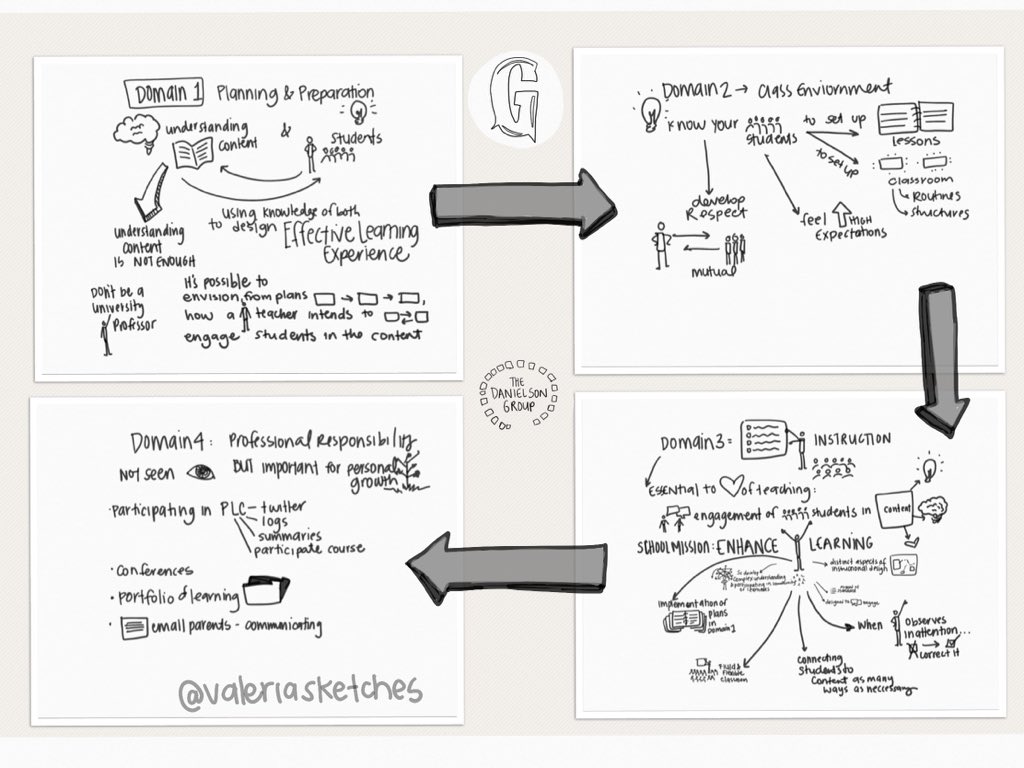 Domain 1 Planning & Preparation
understanding
content
&
students
understanding
content
IS NOT ENOUGH
using knowledge of both
to design Effective Learning
Experience
DON'T BE A
university
Professor
It's possible to
envision from plans
how a teacher intends to
engage students in the content
G
Domain 2 → Class Enviornment
Know your students
to set up
lessons
to set up
classroom
Routines
structures
develop
Respect
mutual
feel HIGH
Expectations
THE
DANIELSON
GROUP
Domain 3: INSTRUCTION
Essential to ♡ of teaching:
engagement of students in
Content
SCHOOL MISSION: ENHANCE LEARNING
So develop
complex understanding
& participating in community
of learners
distinct aspects of
instructional design
designed to engage
Implementation of
Plans
in
Domain 1
When
observes
inattention...
correct it
Fluid &
Flexible
classroom
connecting
students to
content as many
ways as necessary
Domain 4: Professional Responsibility
Not seen
BUT important for personal
growth
·Participating in PLC - twitter
logs
summaries
participate course
· conferences
· portfolio of learning
· email parents - communicating
@valeriasketches